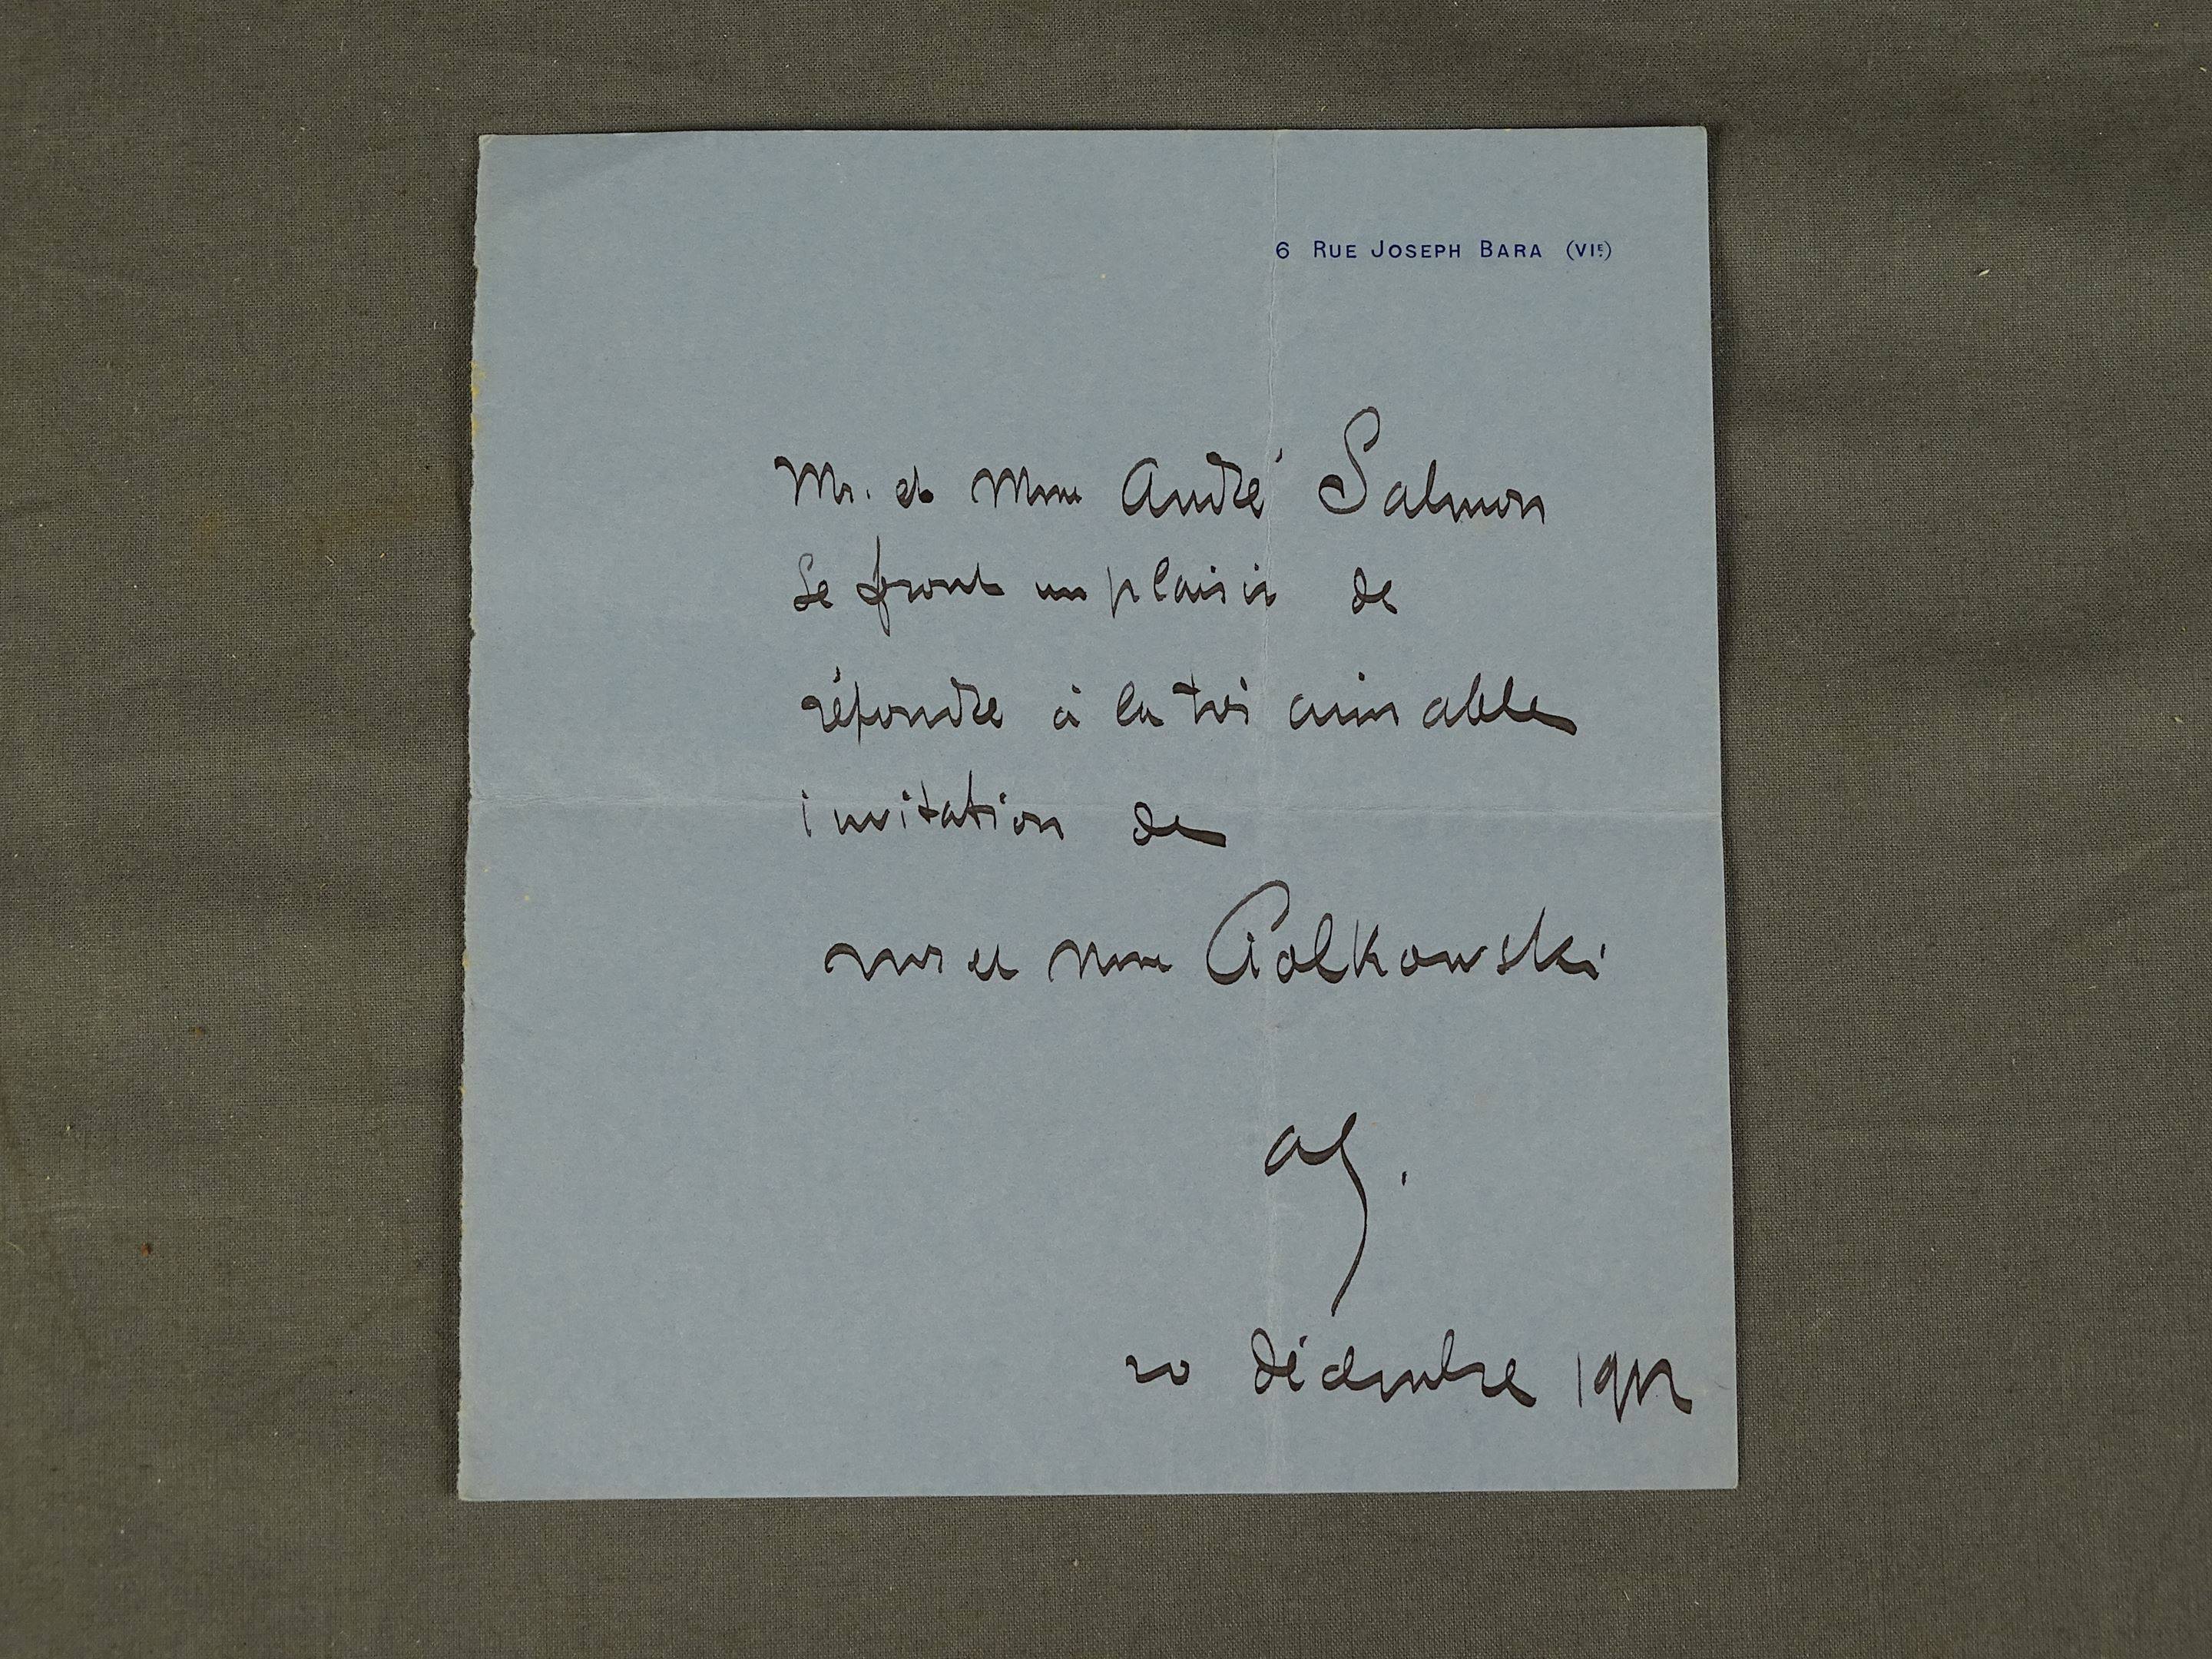 6 RUE JOSEPH BARA (VIE)
Mr. et Mme André Salmon
se front un plaisir de
répondre à la très aimable
invitation de
Mr et Mme Golkowski
AS.
20 décembre 1912